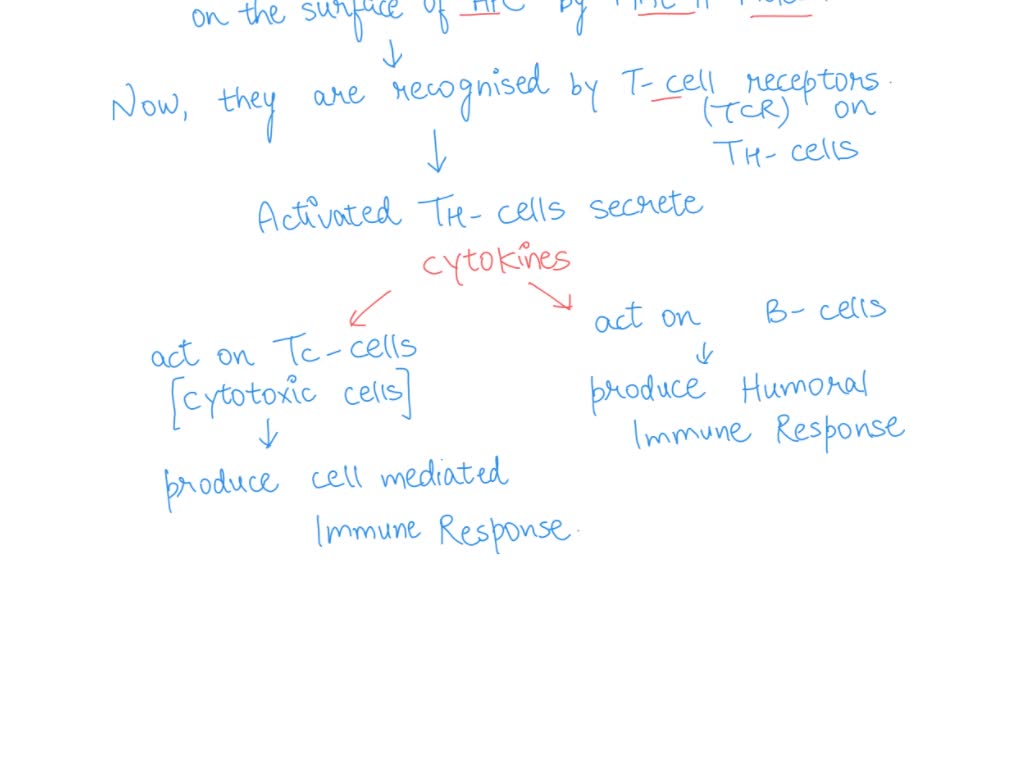 on the surface of APC by MHC II
Now, they are recognised by T-cell receptors.
(TCR) on
TH-cells
Activated TH-cells secrete
cytokines
act on Tc-cells
[cytotoxic cells]
produce cell mediated
Immune Response.
act on B-cells
produce Humoral
Immune Response